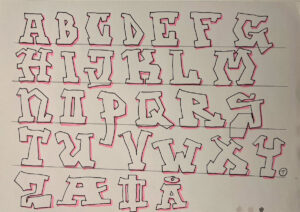 A B C D E F G
H I J K L M
N O P Q R S
T U V W X Y
Z Æ Ø Å